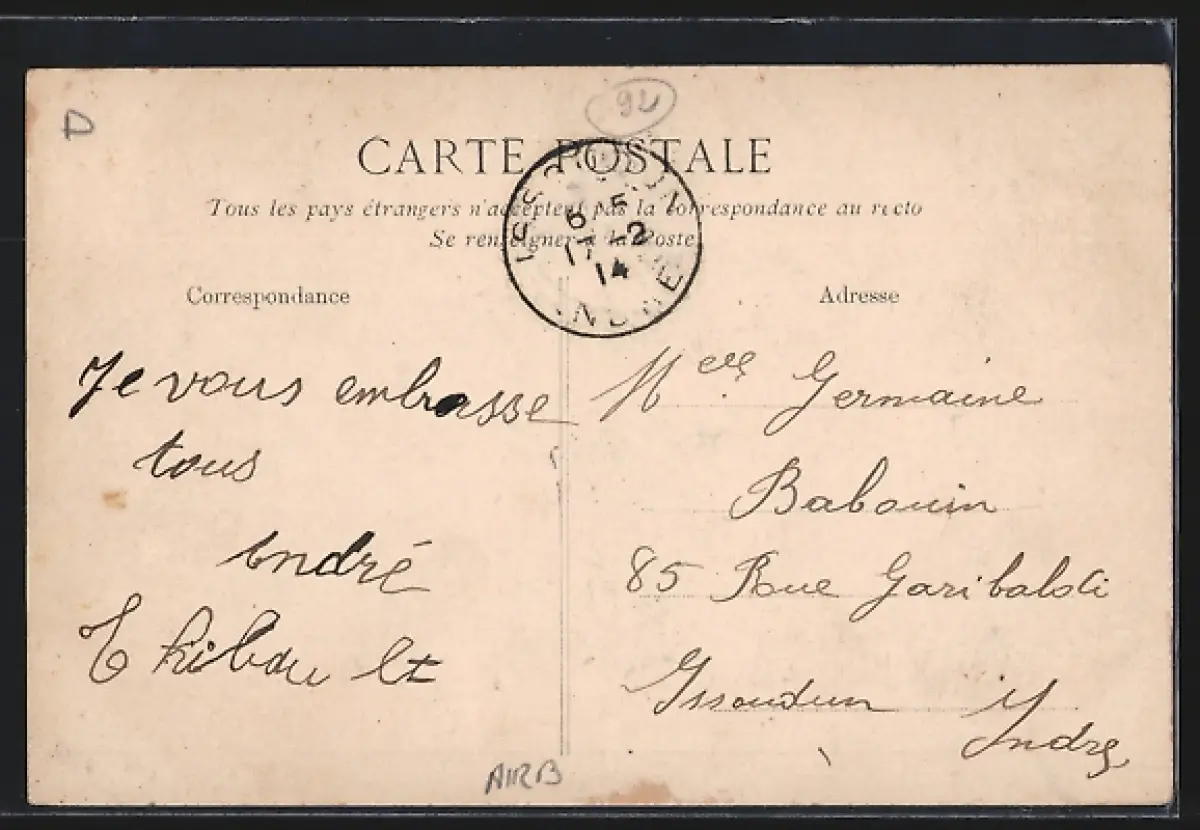 92
D
CARTE POSTALE
Tous les pays étrangers n'acceptent pas la correspondance au recto
Se renseigner à la Poste
ISSOUDUN
6 5
17-2
14
INDRE
Correspondance
Adresse
Je vous embrasse
tous
André
Thibault
Melle Germaine
Babouin
85 Rue Garibaldi
Issoudun Indre
AIRB